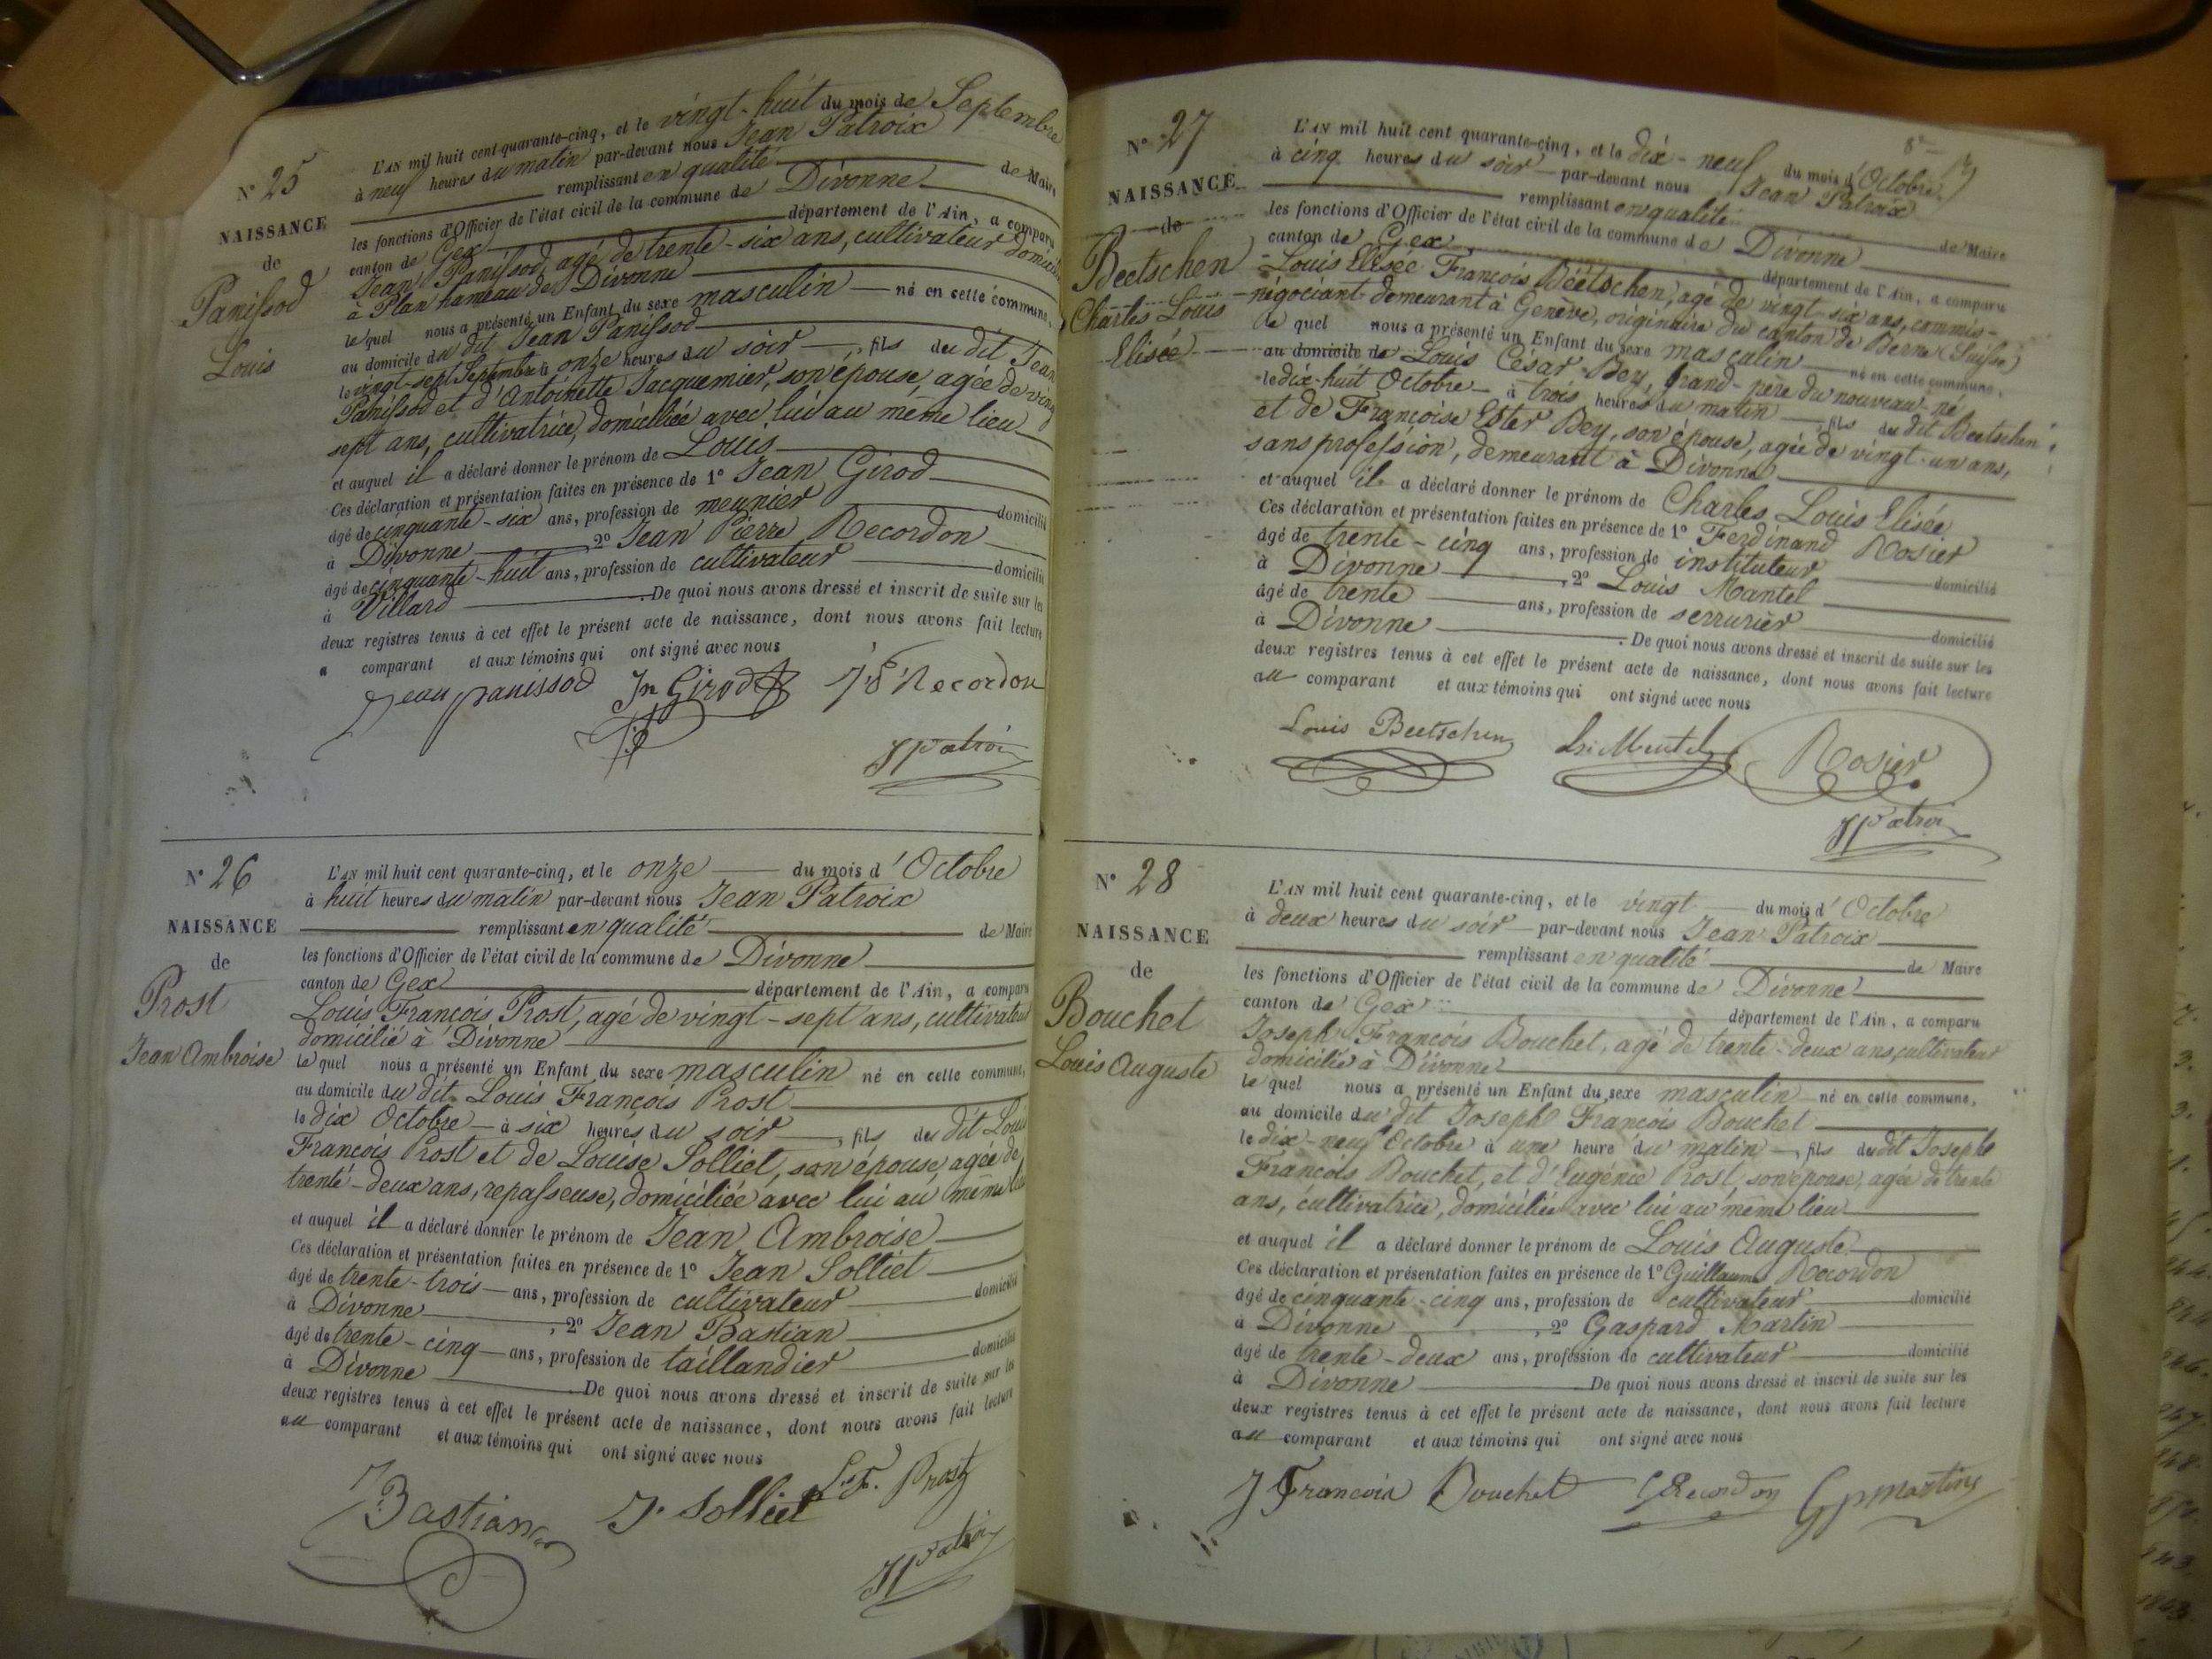 N° 25
NAISSANCE
de
Panissod
Louis
L'AN mil huit cent quarante-cinq, et le vingt-huit du mois de Septembre
à neuf heures du matin par-devant nous Jean Patroix
remplissant en qualité de Maire
les fonctions d'Officier de l'état civil de la commune de Divonne
canton de Gex département de l'Ain, a comparu
Jean Panissod, agé de trente-six ans, cultivateur domicilié
à Plan hameau de Divonne
lequel nous a présenté un Enfant du sexe masculin né en cette commune,
au domicile du dit Jean Panissod
le vingt-sept Septembre à onze heures du soir, fils du dit Jean
Panissod et d'Antoinette Jacquemier, son épouse, agée de vingt
sept ans, cultivatrice, domiciliée avec lui au même lieu
et auquel il a déclaré donner le prénom de Louis
Ces déclaration et présentation faites en présence de 1° Jean Girod
âgé de cinquante-six ans, profession de meunier domicilié
à Divonne 2° Jean Pierre Recordon
âgé de cinquante-huit ans, profession de cultivateur domicilié
à Villard. De quoi nous avons dressé et inscrit de suite sur les
deux registres tenus à cet effet le présent acte de naissance, dont nous avons fait lecture
a comparant et aux témoins qui ont signé avec nous
Jean panissod Jn Girod Recordon
JPatroi
N° 26
NAISSANCE
de
Prost
Jean Ambroise
L'AN mil huit cent quarante-cinq, et le onze du mois d'Octobre
à huit heures du matin par-devant nous Jean Patroix
remplissant en qualité de Maire
les fonctions d'Officier de l'état civil de la commune de Divonne
canton de Gex département de l'Ain, a comparu
Louis François Prost, agé de vingt-sept ans, cultivateur
domicilié à Divonne
lequel nous a présenté un Enfant du sexe masculin né en cette commune,
au domicile du dit Louis François Prost
le dix Octobre à six heures du soir, fils du dit Louis
François Prost et de Louise Solliet, son épouse, agée de
trente-deux ans, repasseuse, domiciliée avec lui au même lieu
et auquel il a déclaré donner le prénom de Jean Ambroise
Ces déclaration et présentation faites en présence de 1° Jean Solliet
âgé de trente-trois ans, profession de cultivateur domicilié
à Divonne, 2° Jean Bastian
âgé de trente-cinq ans, profession de taillandier domicilié
à Divonne De quoi nous avons dressé et inscrit de suite sur les
deux registres tenus à cet effet le présent acte de naissance, dont nous avons fait lecture
au comparant et aux témoins qui ont signé avec nous
JBastian J. Solliet L.F. Prost
JPatroi
N° 27
NAISSANCE
de
Beetschen
Charles Louis
Elisée
L'AN mil huit cent quarante-cinq, et le dix-neuf du mois d'Octobre
à cinq heures du soir par-devant nous Jean Patroix
remplissant en qualité de Maire
les fonctions d'Officier de l'état civil de la commune de Divonne
canton de Gex département de l'Ain, a comparu
Louis Elisée François Béetschen, agé de vingt-six ans, commis-
négociant demeurant à Genève, originaire du canton de Berne (Suisse)
le quel nous a présenté un Enfant du sexe masculin né en cette commune,
au domicile de Louis César Bey, grand-père du nouveau-né
le dix-huit Octobre à trois heures du matin, fils du dit Beetschen
et de Françoise Ester Bey, son épouse, agée de vingt-un ans,
sans profession, demeurant à Divonne
et auquel il a déclaré donner le prénom de Charles Louis Elisée
Ces déclaration et présentation faites en présence de 1° Ferdinand Rosier
âgé de trente-cinq ans, profession de instituteur domicilié
à Divonne, 2° Louis Mantel
âgé de trente ans, profession de serrurier domicilié
à Divonne. De quoi nous avons dressé et inscrit de suite sur les
deux registres tenus à cet effet le présent acte de naissance, dont nous avons fait lecture
au comparant et aux témoins qui ont signé avec nous
Louis Beetschen Rosier
JPatroi
N° 28
NAISSANCE
de
Bouchet
Louis Auguste
L'AN mil huit cent quarante-cinq, et le vingt du mois d'Octobre
à deux heures du soir par-devant nous Jean Patroix
remplissant en qualité de Maire
les fonctions d'Officier de l'état civil de la commune de Divonne
canton de Gex département de l'Ain, a comparu
Joseph François Bouchet, agé de trente-deux ans, cultivateur
domicilié à Divonne
le quel nous a présenté un Enfant du sexe masculin né en cette commune,
au domicile du dit Joseph François Bouchet
le dix-neuf Octobre à une heure du matin, fils du dit Joseph
François Bouchet, et d'Eugénie Prost, son épouse, agée de trente
ans, cultivatrice, domiciliée avec lui au même lieu
et auquel il a déclaré donner le prénom de Louis Auguste
Ces déclaration et présentation faites en présence de 1° Guillaume Recordon
âgé de cinquante-cinq ans, profession de cultivateur domicilié
à Divonne, 2° Gaspard Martin
âgé de trente-deux ans, profession de cultivateur domicilié
à Divonne De quoi nous avons dressé et inscrit de suite sur les
deux registres tenus à cet effet le présent acte de naissance, dont nous avons fait lecture
au comparant et aux témoins qui ont signé avec nous
J François Bouchet GRecordon Gpmartin